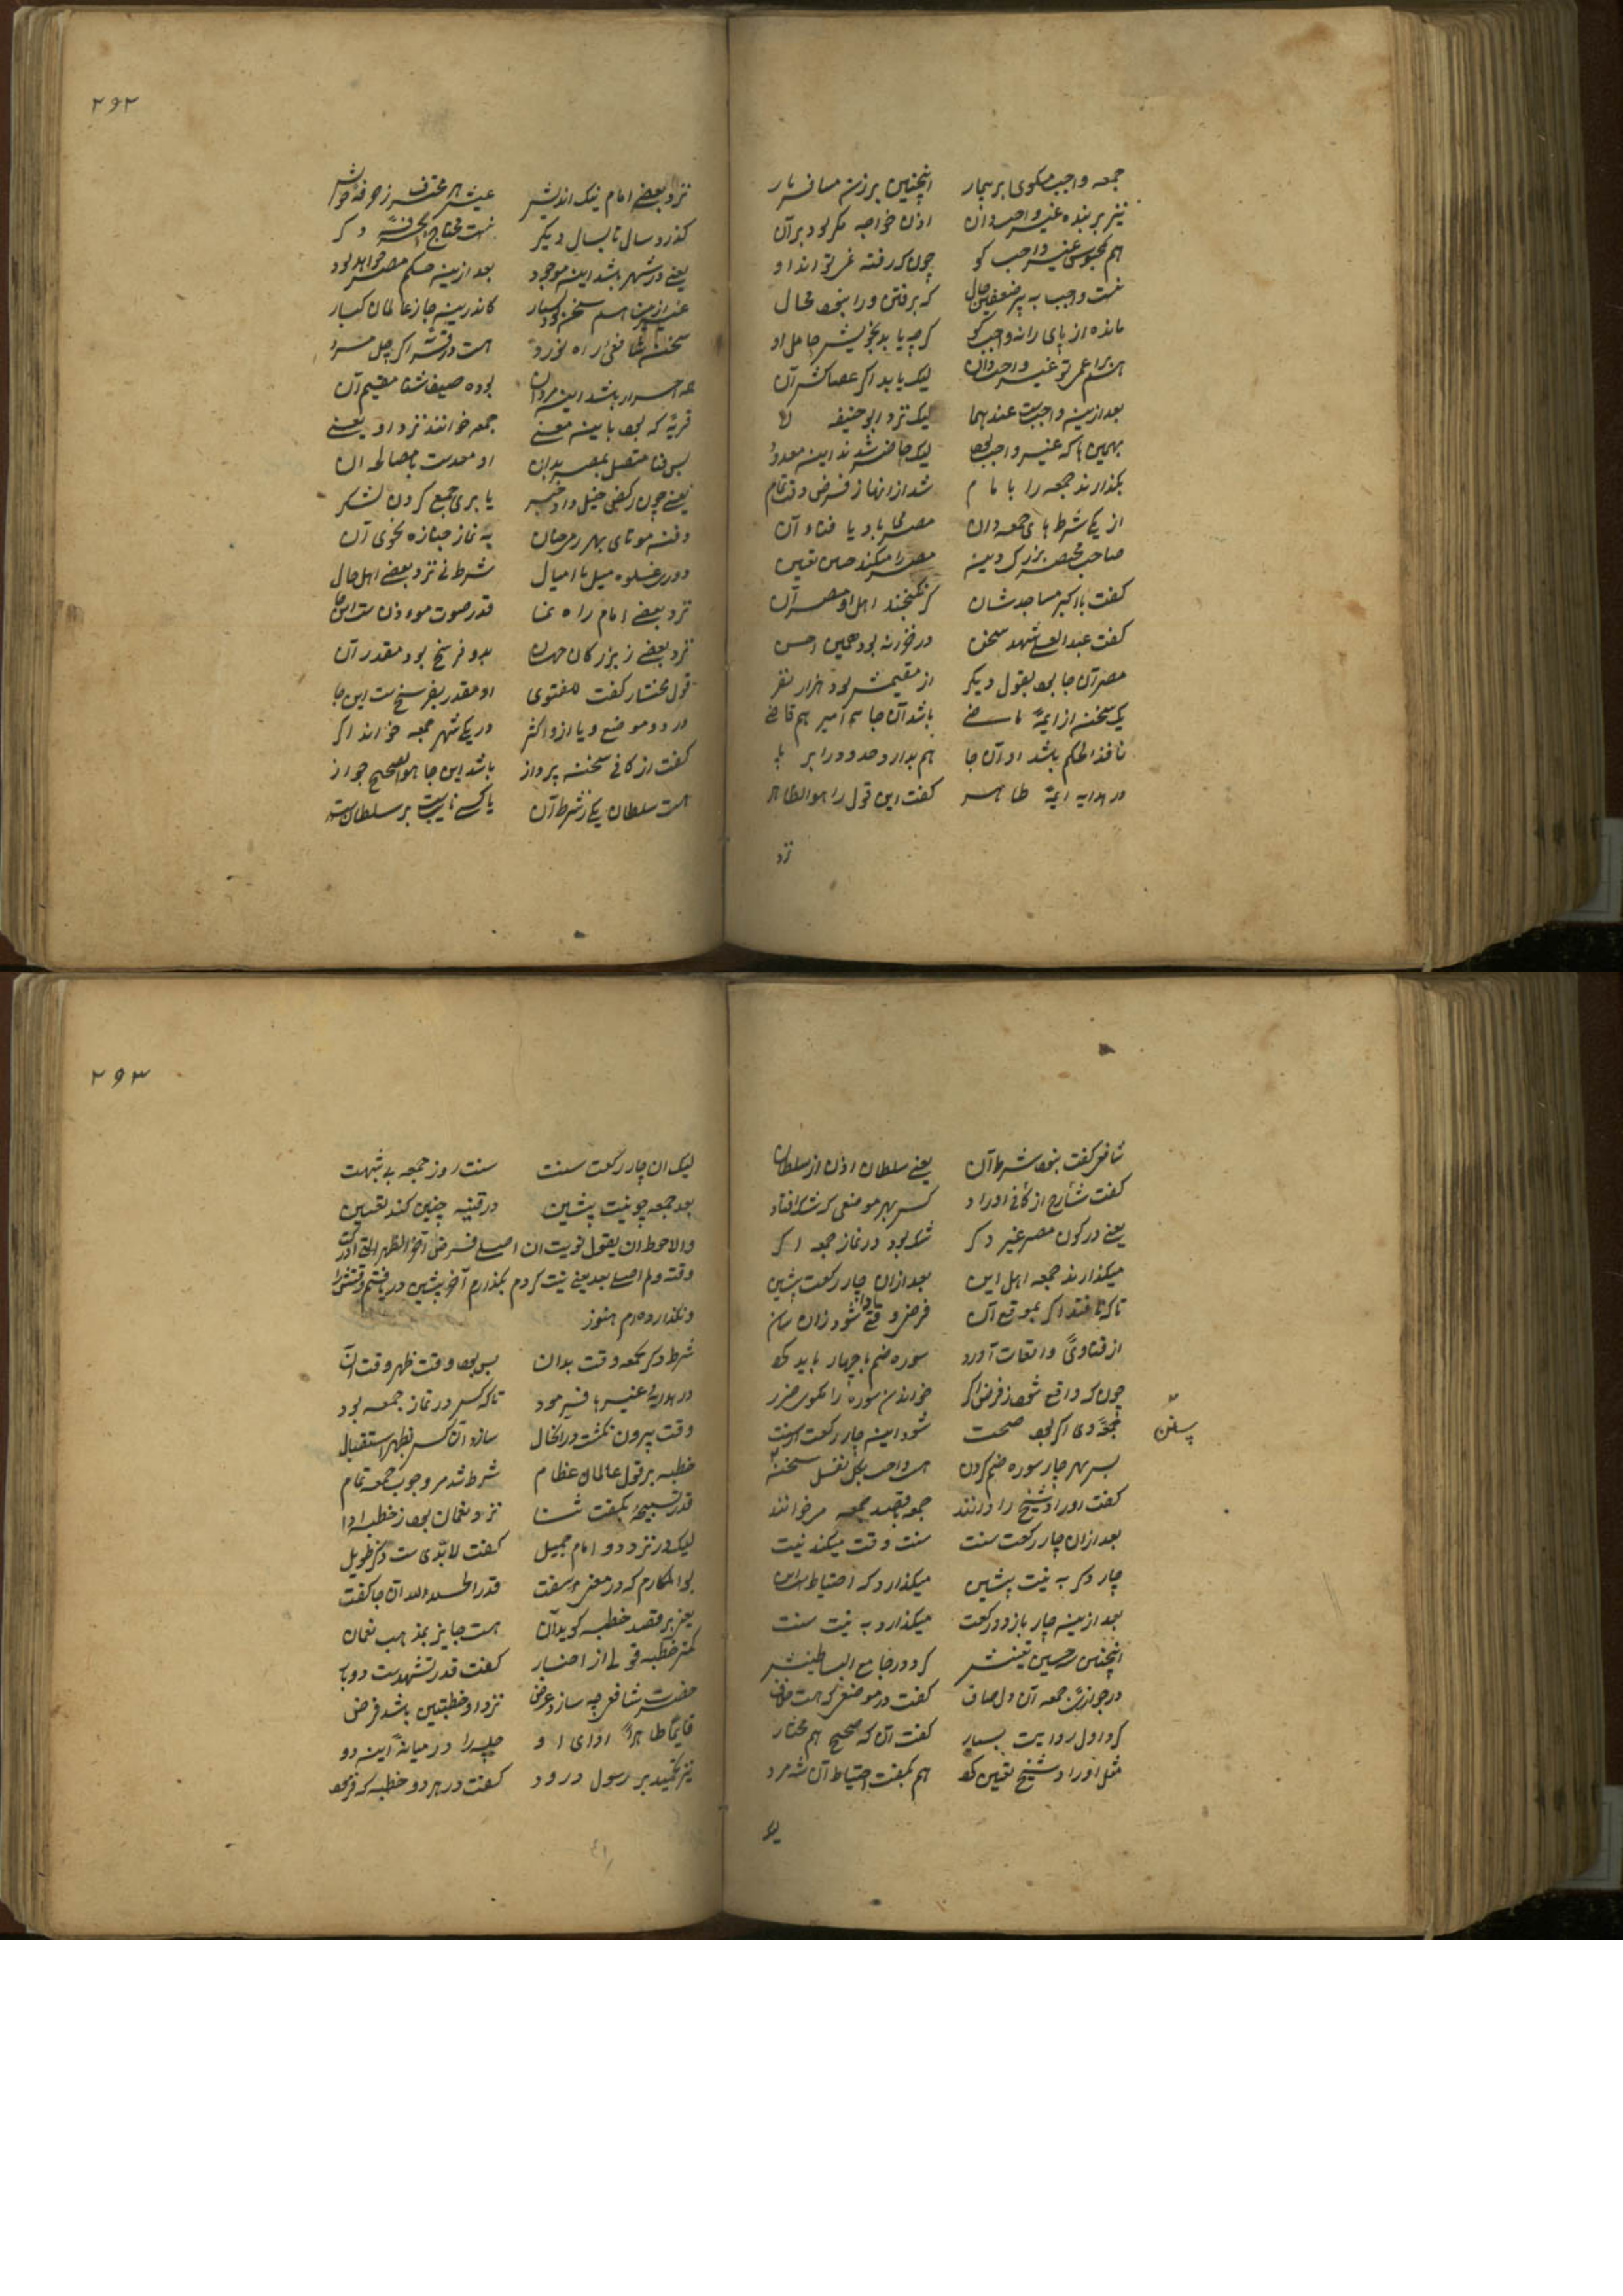 جمعه واجب مگوی بر بیمار اینچنین بر زن مسافر یار
نیز بر بنده غیر واجب دان اذن خواجه مگر بود بر آن
هم محبوس غیر واجب گو چون که رفته نمی تواند او
نیست واجب به پیر ضعیفین حال که برفتن ورا بود محال
مانده از پای را نه واجب گو گرچه یابد بخویش حامل او
لیک یابد اگر عصاکش آن
بعد ازینه واجبست عندهما لیک نزد ابو حنیفه لا
لیک حاضر شدند اینه معدود
بگذارند جمعه را با مام شد ازانها ز فرض وقت تمام
از یکی شرط های جمعه دان مصر می باد یا فناء آن
صاحب مختصر بزرگ دینه مصر را میکند چنین تعیین
گفت با اکبر مساجد شان گر نگنجند اهل او مصر آن
گفت عبد العلی شهد سخن در خزانه بود همین احسن
مصر آن جا بود بقول دیگر از مقیمش بود هزار نفر
یک سخن از ایمهٔ ماضی باشد آن جا هم امیر هم قاضی
نافذ الحکم باشد او آن جا هم بدارد حدود را بر پا
در هدایه ایمهٔ طاهر گفت این قول را هو الظاهر
نزد
۲۹۲
نزد بعضی امام نیک اندیش عیش هر محترف ز حرفهٔ خویش
گذرد سال تا بسال دیگر نیست محتاج حرفهٔ دگر
یعنی در شهر باشد اینه موجود بعد ازینه حکم مصر خواهد بود
کاندرینه جا ز عالمان کبار
سخن شافعی ار راه نورد هست در قریه اگر چهل مرد
همه احرار باشد اینه مردان بوده صیف شتا مقیم آن
قریهٔ که بود باینه معنی جمعه خوانند نزد او یعنی
پس فنا متصل بمصر بدان او معدست با مصالح آن
یعنی چون رکض خیل داد خبر یا برای جمع کردن لشکر
دفن موتای بهر رمی جان به نماز جنازه نحوی آن
دوری غلوه میل یا امیال شرط نی نزد بعضی اهل حال
نزد بعضی امام راه نما قدر صوت موذن ست این جا
نزد بعضی ز بزرگان جهان بدو فرسخ بود مقدر آن
قول مختار گفت للفتوی او مقدر بفرسخ ست این جا
در دو موضع و یا از و اکثر در یکی شهر جمعه خواند اگر
گفت از کافی سخن پرداز باشد این جا هو الصحیح جواز
هست سلطان یکی ز شرط آن یا کسی نایبست بر سلطان
شافعی گفت نبود شرط آن یعنی سلطان اذن از سلطان
گفت شارح از کافی اوراد کسی بهر موضعی که شک افتاد
یعنی در کون مصر غیر دگر شک بود در نماز جمعه اگر
میگذارند جمعه اهل این بعد ازان چار رکعت پشین
تا که نافتد اگر بموقع آن فرض وقتی ادا شود زان سان
از فتاوی واقعات آورد سوره ضم با چهار باید کرد
چون که واقع شود ز فرض اگر خواندن سوره را مگوی ضرر
جمعهٔ وی اگر بود صحت شود اینه چار رکعت از سنت
پس بهر چار سوره ضم کردن هست واجب بکل نفل سخن
گفت اوراد شیخ را دانند چون بقصد جمعه میخوانند
بعد ازان چار رکعت سنت سنت وقت میکند نیت
چار دگر به نیت پشین میگذارد که احتیاط است این
بعد ازینه چار باز دو رکعت میگذارد به نیت سنت
در جواز جمعه آن دل صاف گفت در موضعی که هست خلاف
کرد اول روایت بسیار گفت آن که صحیح هم مختار
مثل اوراد شیخ تعیین کرد هم بگفت احتیاط آن شه مرد
۲۹۳
لیک ان چار رکعت سنت سنت روز جمعه بی شبهت
بعد جمعه چو نیت پشین در قنیه چنین کند تعیین
والاحوط ان یقول نویت ان اصلی فرض آخر الظهر التی ادرکت
وقته ولم اصل بعد یعنی نیت کردم بگذارم آخر پشین دریافتم وقتش را
و نگذارده ام هنوز
شرط دگر بجمعه وقت بدان پس بود وقت ظهر وقت آن
تا که کس در نماز جمعه بود
وقت بیرون گذشت در الحال سازد آن کس بظهر استقبال
خطبه بر قول عالمان عظام شرط شد مر وجوب جمعه تمام
قدر تسبیحهٔ بگفت ثنا نزد نعمان بود ز خطبه ادا
لیک در نزد دو امام جمیل گفت لابدی ست ذکر طویل
بو المکارم که در معنی سفت قدر الحمد لله آن جا گفت
یعنی بر قصد خطبه گوید آن هست جایز بمذهب نعمان
کمتر خطبه قولی از اخبار گفت قدر تشهدست دو بار
حضرت شافعی چه سازد عرض نزد او خطبتین باشد فرض
قایما طاهراً ادای او جلسه را در میانهٔ اینه دو
نیز تحمید بر رسول درود گفت در هر دو خطبه که فرمود